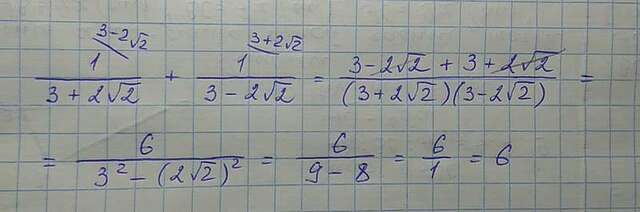 1^{\3-2√2}/(3+2√2) + 1^{\3+2√2}/(3-2√2) = (3-2√2+3+2√2)/((3+2√2)(3-2√2)) =
= 6/(3²-(2√2)²) = 6/(9-8) = 6/1 = 6